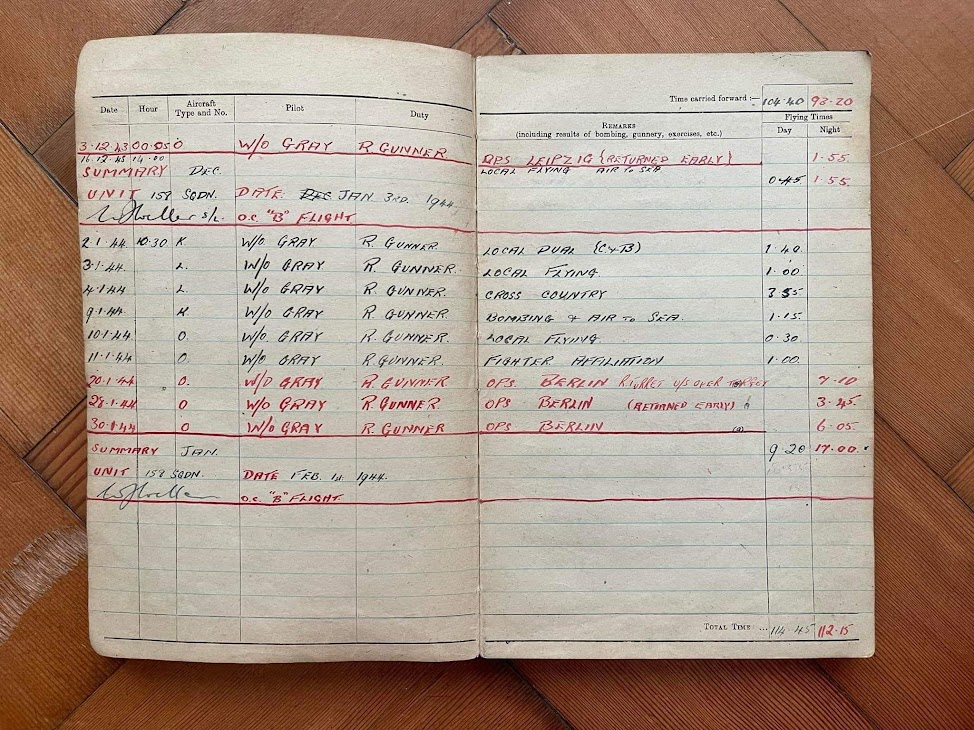 Time carried forward :— 104.40 93.20
Date Hour Aircraft Type and No. Pilot Duty REMARKS (including results of bombing, gunnery, exercises, etc.) Flying Times Day Night
3.12.43 00.05 O W/O GRAY R GUNNER OPS LEIPZIG (RETURNED EARLY) 1.55
16.12.43 14.00 LOCAL FLYING AIR TO SEA 0.45
SUMMARY DEC. 0.45 1.55
UNIT 158 SQDN. DATE JAN 3RD. 1944
S/L. O.C. "B" FLIGHT
2.1.44 10.30 K W/O GRAY R. GUNNER. LOCAL DUAL (C+B) 1.40
3.1.44. L. W/O GRAY R. GUNNER. LOCAL FLYING 1.00
4.1.44 L W/O GRAY R. GUNNER. CROSS COUNTRY 3.55
9.1.44 K W/O GRAY R. GUNNER BOMBING & AIR TO SEA. 1.15
10.1.44 O. W/O GRAY R. GUNNER. LOCAL FLYING. 0.30
11.1.44 O. W/O GRAY R. GUNNER. FIGHTER AFFILIATION 1.00
20.1.44. O. W/O GRAY R. GUNNER OPS BERLIN R/TURRET U/S OVER TARGET 7.10
28.1.44 O W/O GRAY R. GUNNER. OPS BERLIN (RETURNED EARLY) 3.45
30.1.44 O W/O GRAY R. GUNNER OPS BERLIN 6.05
SUMMARY JAN. 9.20 17.00
UNIT 158 SQDN. DATE FEB 1st. 1944.
O.C. "B" FLIGHT.
TOTAL TIME ... 114.45 112.15